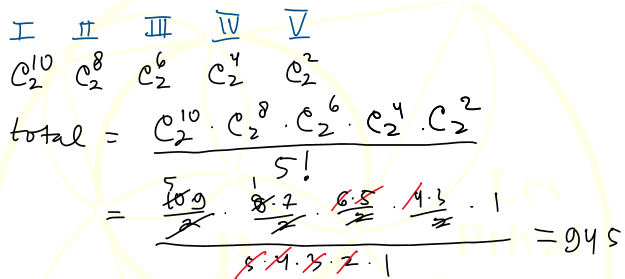 I II III IV V
C₂¹⁰ C₂⁸ C₂⁶ C₂⁴ C₂²
total = C₂¹⁰ · C₂⁸ · C₂⁶ · C₂⁴ · C₂²
5!
5 1
= 10·9/2 · 8·7/2 · 6·5/2 · 4·3/2 · 1
5·4·3·2·1 = 945